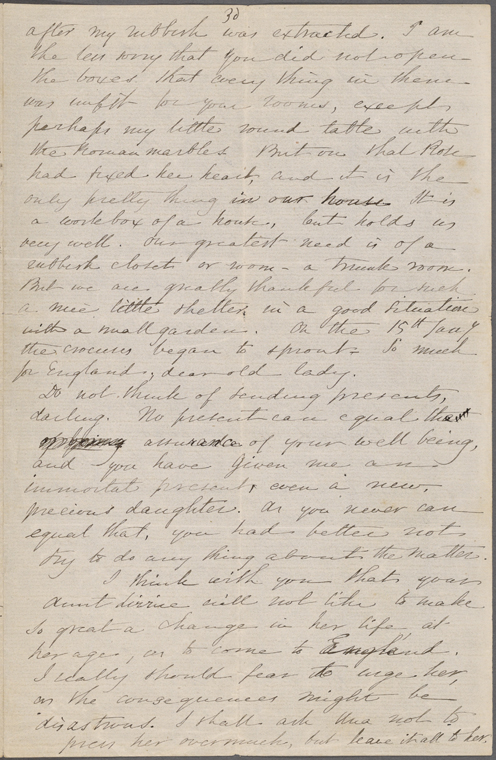 3d
after my rubbish was extracted. I am
the less sorry that you did not open
the boxes, that every thing in them
was unfit for your rooms, except
perhaps my little round table with
the Roman marbles. But on that Rose
had fixed her heart, and it is the
only pretty thing in our house. It is
a workbox of a house, but holds us
very well. Our greatest need is of a
rubbish closet or room - a trunk room.
But we are greatly thankful for such
a nice little shelter in a good situation
with a small garden. On the 15th Jany
the crocuses began to sprout. So much
for England, dear old lady.
Do not think of sending presents,
darling. No present can equal the
assurance of your well being,
and you have given me an
immortal present, even a new,
precious daughter. As you never can
equal that, you had better not
try to do any thing about the matter.
I think with you that your
Aunt will not like to make
so great a change in her life, at
her age, as to come to England.
I really should fear to urge her,
as the consequences might be
disastrous. I shall ask Una not to
press her overmuch, but leave it all to her.